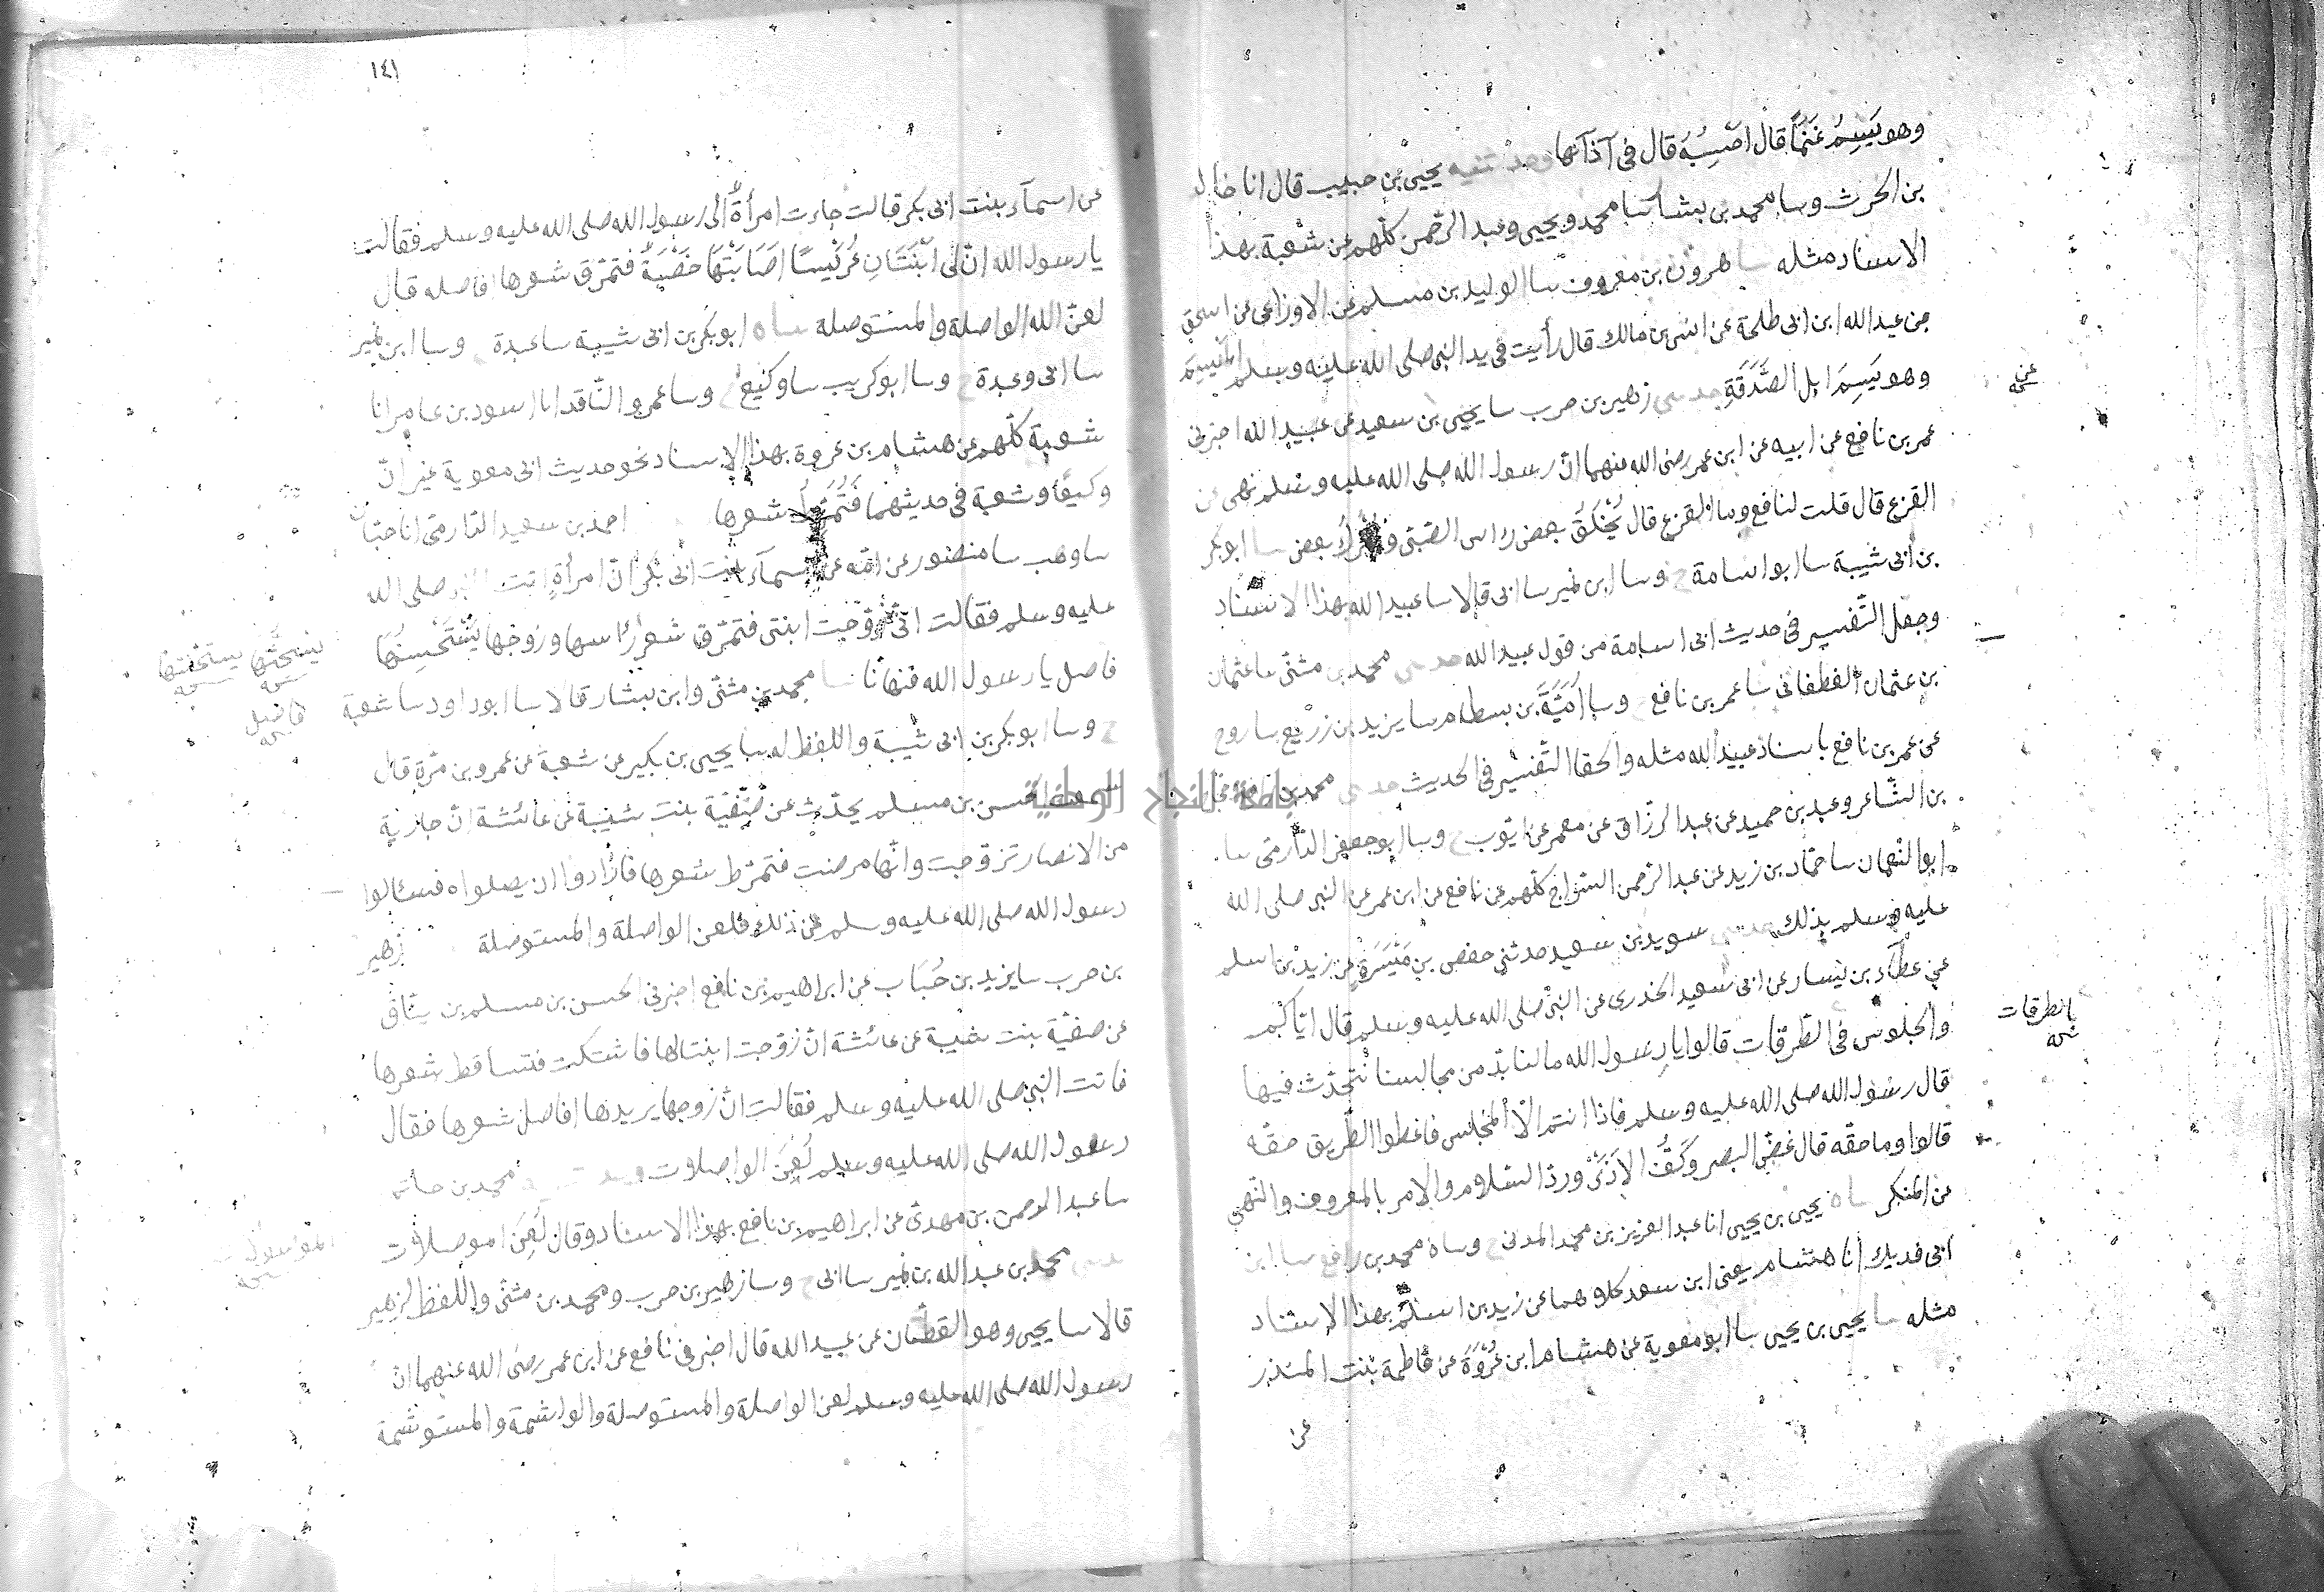 وهو يَسِمُ غَنَمًا قال احسِبُهُ قال فى آذانها وحدثنيه يحيى بن حبيب قال انا خالد
بن الحرث وسا محمد بن بشار سا محمد ويحيى وعبد الرحمن كلّهم عن شعبة بهذا
الاسناد مثله سا هرون بن معروف سا الوليد بن مسلم عن الاوزاعى عن اسحق
بن عبد الله ابن ابى طلحة عن انس بن مالك قال رأيت فى يد النبى صلى الله عليه وسلم الميسم
وهو يَسِمُ ابل الصَّدَقَةِ حدثنى زهير بن حرب سا يحيى بن سعيد عن عبيد الله اخبرنى
عن
عمر بن نافع عن ابيه عن ابن عمر رضى الله عنهما انّ رسول الله صلى الله عليه وسلم نهى عن
القزع قال قلت لنافع وما القزع قال يُحْلَقُ بعض راس الصّبىّ ويُتْرَكُ بعض سا ابو بكر
بن ابى شيبة سا ابو اسامة ح وسا ابن نمير سا ابى قالا سا عبيد الله بهذا الاسناد
وجعل التّفسير فى حديث ابى اسامة من قول عبيد الله حدثنى محمد بن مثنّى سا عثمان
بن عثمان الغطفانى سا عمر بن نافع ح وسا اُمَيَّةَ بن بسطام سا يزيد بن زريع سا روح
عن عمر بن نافع باسناد عبيد الله مثله والحقا التّفسير فى الحديث حدثنى محمد بن رافع وحجاج
بن الشّاعر وعبد بن حميد عن عبد الرزاق عن معمر عن ايّوب ح وسا ابو جعفر الدّارمى سا
ابو النعمان سا حمّاد بن زيد عن عبد الرّحمن السّراج كلّهم عن نافع عن ابن عمر عن النبى صلى الله
عليه وسلم بذلك حدثنى سويد بن سعيد حدثنى حفص بن مَيْسَرَة عن زيد بن اسلم
عن عطآء بن يسار عن ابى سعيد الخدرى عن النبىّ صلى الله عليه وسلم قال ايّاكم
والجلوس فى الطّرقات قالوا يا رسول الله ما لنا بدّ من مجالسنا نتحدّث فيها
بالطرقات
نسخه
قال رسول الله صلى الله عليه وسلم فاذا ابيتم الّا المجلس فاعطوا الطّريق حقّه
قالوا وما حقّه قال غضّ البصر وكَفُّ الاَذَى وردّ السّلام والامر بالمعروف والنّهى
عن المنكر ساه يحيى بن يحيى انا عبد العزيز بن محمد المدنى ح وساه محمد بن رافع سا ابن
ابى فديك انا هشام يعنى ابن سعد كلاهما عن زيد بن اسلم بهذا الاسناد
مثله سا يحيى بن يحيى سا ابو معوية عن هشام ابن عُرْوَةَ عن فاطمة بنت المنذر
عن
١٤١
عن اسمآء بنت ابى بكر قالت جاءت امرأةٌ الى رسول الله صلى الله عليه وسلم فقالت
يا رسول الله انّ لى ابْنَتَانِ عُرَيِّسًا اصَابَتْهَا حَصْبَةٌ فتمرّق شعرها افاصله قال
لعن الله الواصلة والمستوصلة ساه ابو بكر بن ابى شيبة سا عبدة ح وسا ابن نمير
سا ابى وعبدة ح وسا ابو كريب سا وكيع ح وسا عمرو النّاقد انا اسود بن عامر انا
شعبة كلّهم عن هشام بن عروة بهذا الاسناد نحو حديث ابى معوية غير انّ
وكيعًا وشعبة فى حديثهما فَتَمَرَّطَ شعرها احمد بن سعيد الدّارمىّ انا حبّان
سا وهب سا منصور عن امّه عن اسمآء بنت ابى بكر انّ امرأة اتت النبى صلى الله
عليه وسلم فقالت انّى زوّجت ابنتى فتمرّق شعر راسها وزوجها يَسْتَحْسِنُهَا
يستحثها نسخه
يستحثنيها نسخه
فاصل يا رسول الله فنهانا سا محمد بن مثنّى وابن بشار قالا سا ابو داود سا شعبة
افاصل نسخه
ح وسا ابو بكر بن ابى شيبة واللفظ له سا يحيى بن بكير عن شعبة عن عمرو بن مرّة قال
سمعت الحسن بن مسلم يحدّث عن صَفيّة بنت شيبة عن عائشة انّ جارية
جامعة النجاح الوطنية
من الانصار تزوّجت وانّها مرضت فتمرّط شعرها فارادوا ان يصلوه فسالوا
رسول الله صلى الله عليه وسلم عن ذلك فلعن الواصلة والمستوصلة زهير
بن حرب سا يزيد بن حُبَاب عن ابراهيم بن نافع اخبرنى الحسن بن مسلم بن ينّاق
عن صفيّة بنت شيبة عن عائشة انّ زوّجت ابنتا لها فاشتكت فتساقط شعرها
فاتت النبى صلى الله عليه وسلم فقالت انّ زوجها يريدها افاصل شعرها فقال
رسول الله صلى الله عليه وسلم لُعِنَ الواصلات محمد بن حاتم
سا عبد الرحمن بن مهدىّ عن ابراهيم بن نافع بهذا الاسناد وقال لُعِنَ الموصلات
نسخه
محمد بن عبد الله بن نمير سا ابى ح وسا زهير بن حرب ومحمد بن مثنّى واللفظ لزهير
قالا سا يحيى وهو القطّان عن عبيد الله قال اخبرنى نافع عن ابن عمر رضى الله عنهما انّ
رسول الله صلى الله عليه وسلم لعن الواصلة والمستوصلة والواشمة والمستوشمة